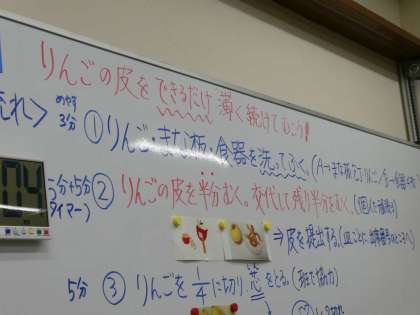 りんごの皮をできるだけ薄く続けてむこう!
流れ>
めやす
3分
①りんご・まな板・食器を洗ってふく。
04
5分+5分
タイマー)
②りんごの皮を半分むく。交代して残り半分をむく。
⇒皮を提出する。
5分
③りんごを1/4に切り芯をとる。(班で協力)